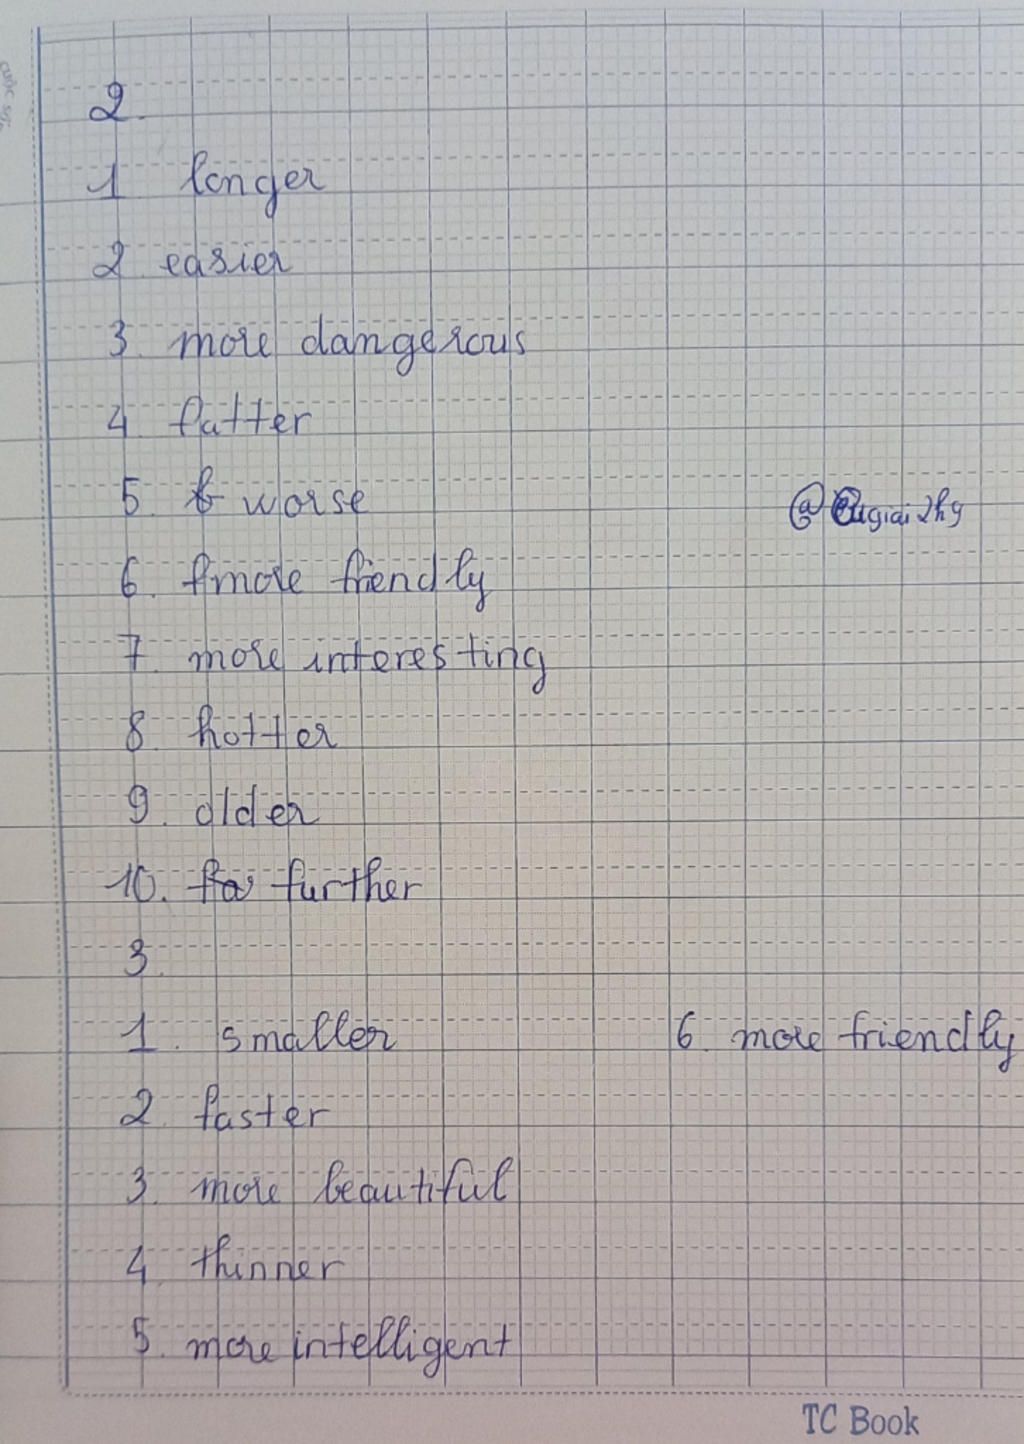 2.
1 longer
2 easier
3. more dangerous
4. fatter
5. worse
6. more friendly
7. more interesting
8. hotter
9. older
10. further
3.
1. smaller
6. more friendly
2. faster
3. more beautiful
4. thinner
5. more intelligent
TC Book